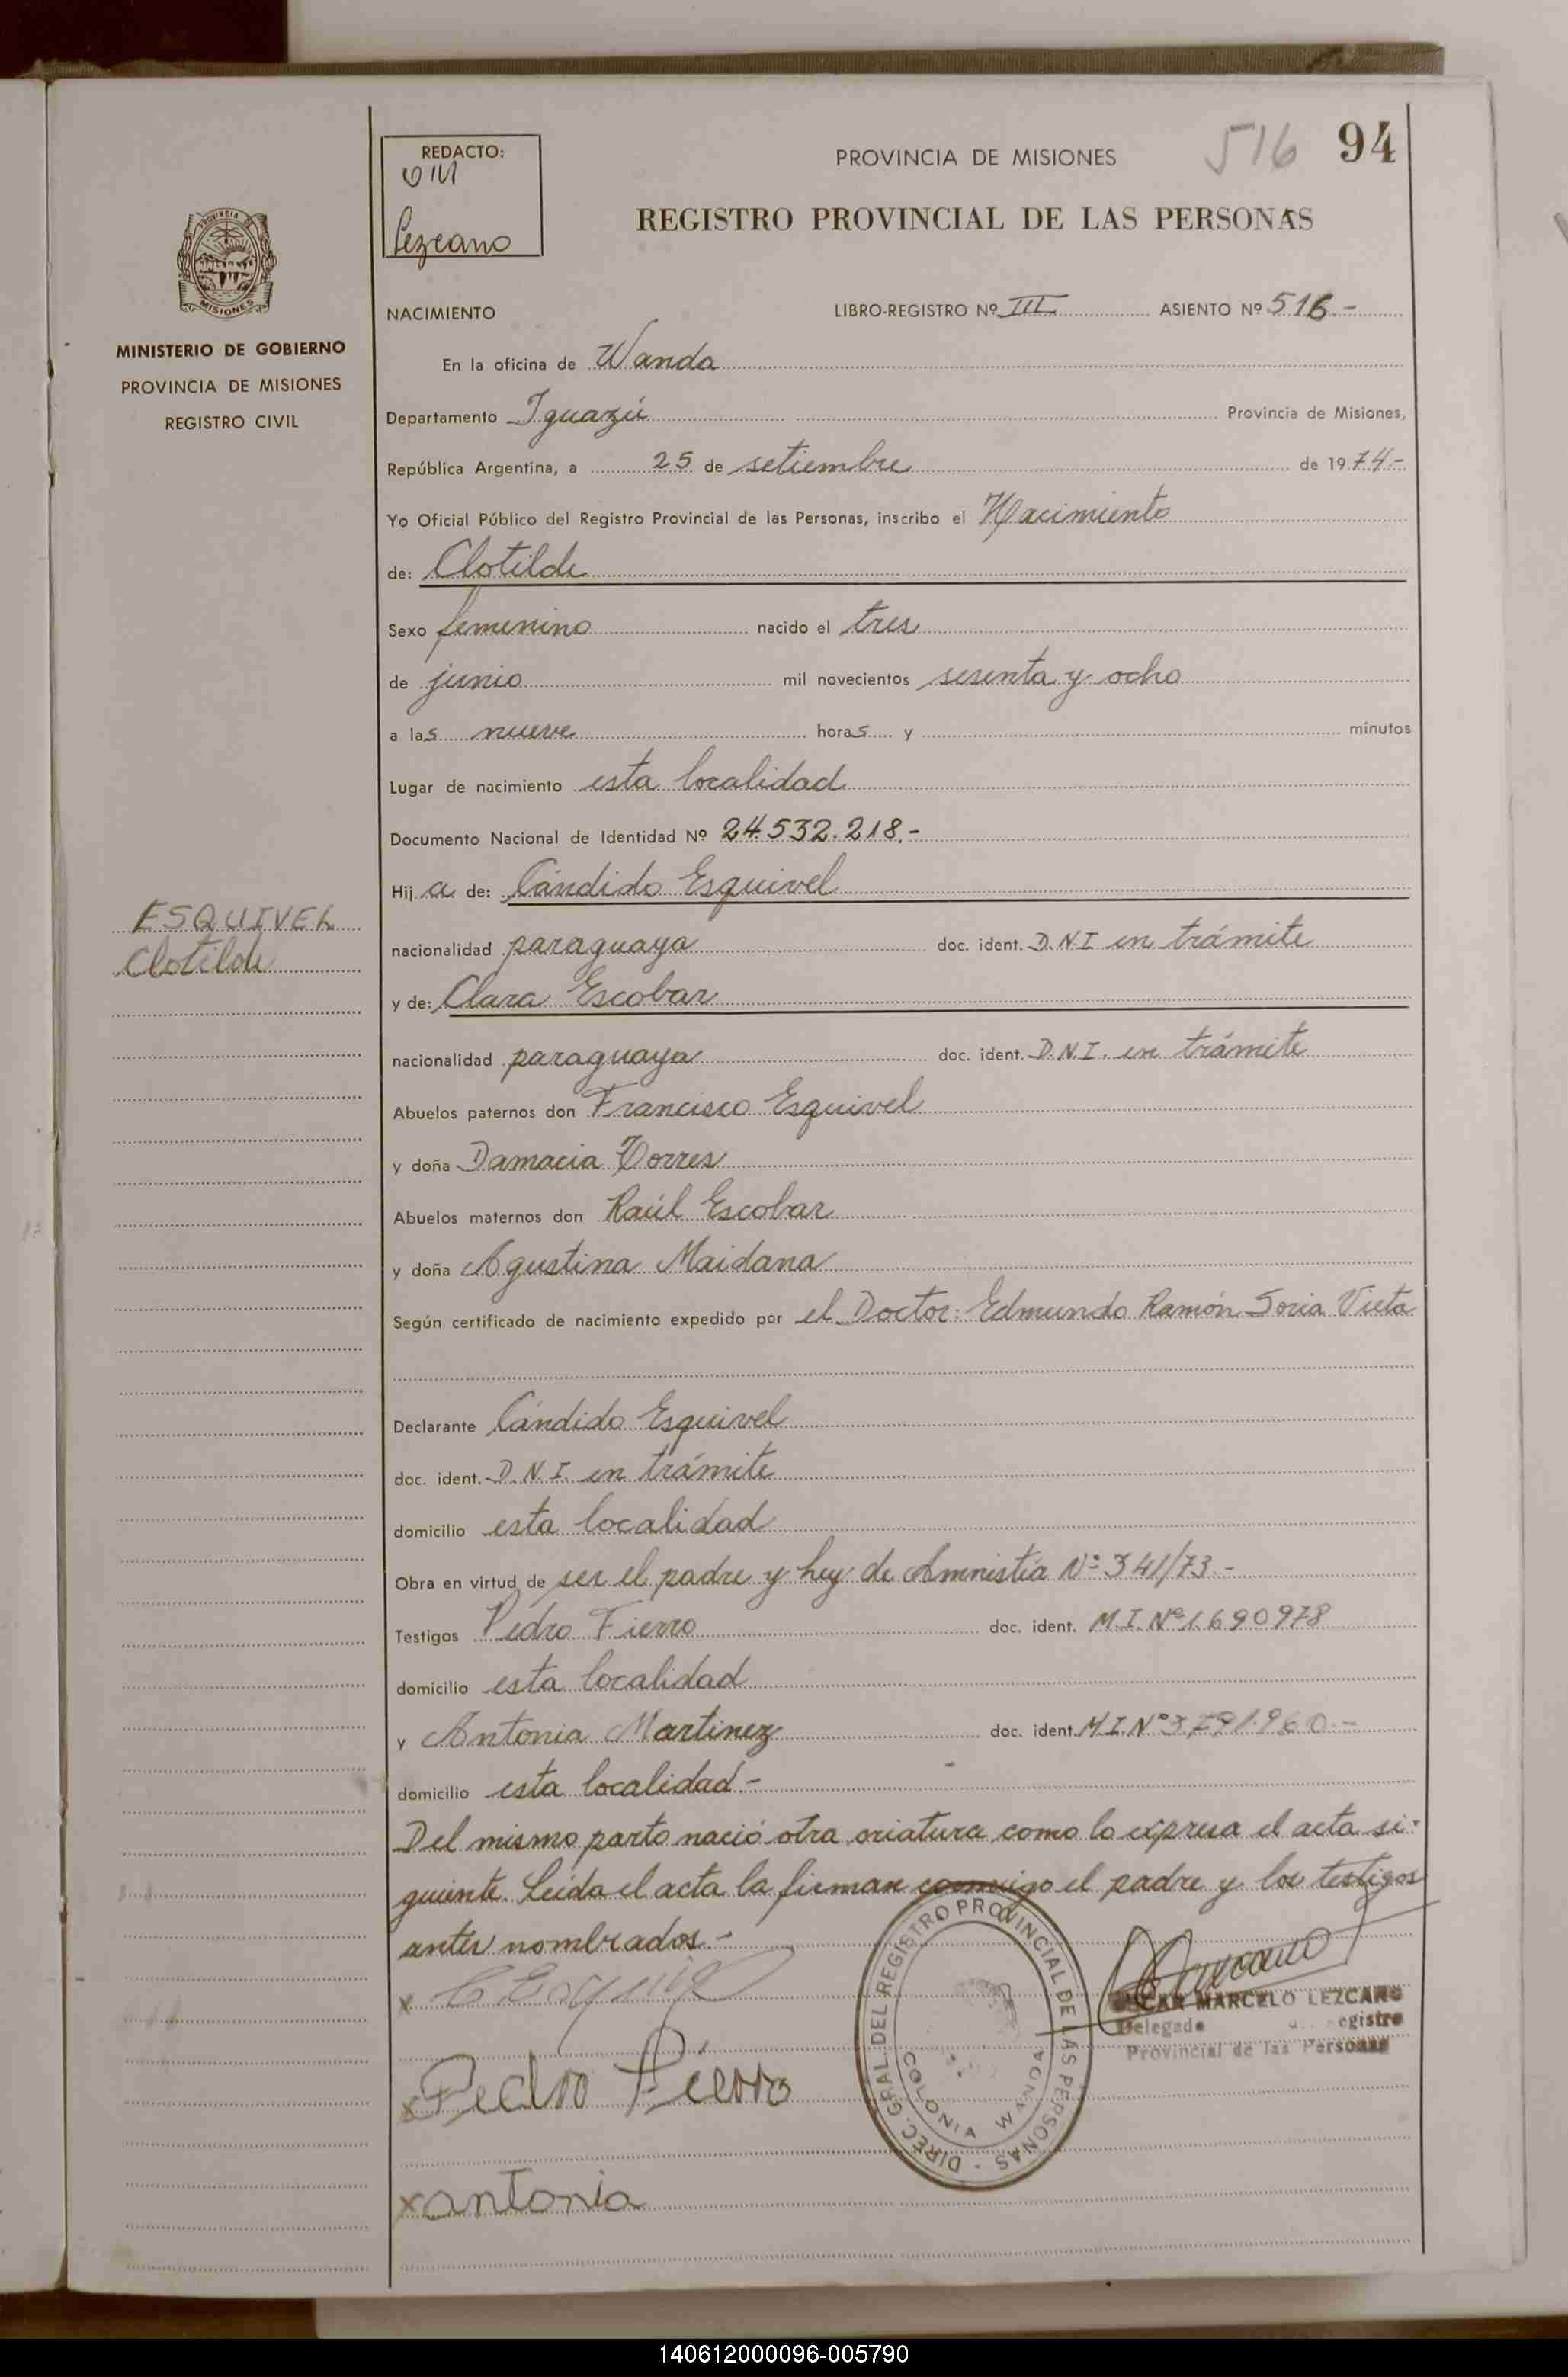 516 94
REDACTO:
Lezcano
PROVINCIA DE MISIONES
REGISTRO PROVINCIAL DE LAS PERSONAS
PROVINCIA DE
MISIONES
MINISTERIO DE GOBIERNO
PROVINCIA DE MISIONES
REGISTRO CIVIL
NACIMIENTO LIBRO-REGISTRO Nº III ASIENTO Nº 516-
En la oficina de Wanda
Departamento Iguazú Provincia de Misiones,
República Argentina, a 25 de setiembre de 1974.-
Yo Oficial Público del Registro Provincial de las Personas, inscribo el Nacimiento
de: Clotilde
Sexo femenino nacido el tres
de junio mil novecientos sesenta y ocho
a las nueve horas y minutos
Lugar de nacimiento esta localidad
Documento Nacional de Identidad Nº 24.532.218.-
Hija de: Cándido Esquivel
ESQUIVEL
Clotilde
nacionalidad paraguaya doc. ident. D.N.I en trámite
y de: Clara Escobar
nacionalidad paraguaya doc. ident. D.N.I. en trámite
Abuelos paternos don Francisco Esquivel
y doña Damacia Torres
Abuelos maternos don Raúl Escobar
y doña Agustina Maidana
Según certificado de nacimiento expedido por el Doctor: Edmundo Ramón Soria Vieta
Declarante Cándido Esquivel
doc. ident. D.N.I. en trámite
domicilio esta localidad
Obra en virtud de ser el padre y Ley de Amnistía Nº 341/73.-
Testigos Pedro Fierro doc. ident. M.I. Nº 1.690978
domicilio esta localidad
y Antonia Martinez doc. ident. M.I. Nº
domicilio esta localidad-
Del mismo parto nació otra criatura como lo expresa el acta si-
guiente. Leída el acta la firman conmigo el padre y los testigos
antes nombrados.-
x C Esquivel
x Pedro Fierro
x antonia
DIREC. GRAL. DEL REGISTRO PROVINCIAL DE LAS PERSONAS -
COLONIA WANDA
OSCAR MARCELO LEZCANO
Delegado Registro
Provincial de las Personas
140612000096-005790